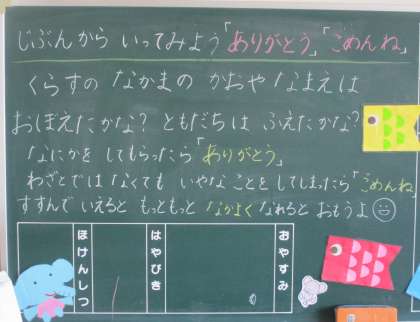 じぶんから いってみよう「ありがとう」「ごめんね」
くらすの なかまの かおや なまえは
おぼえたかな? ともだちは ふえたかな?
なにかを してもらったら「ありがとう」
わざとでは なくても いやな ことを してしまったら「ごめんね」
すすんで いえると もっともっと なかよく なれると おもうよ
おやすみ
はやびき
ほけんしつ